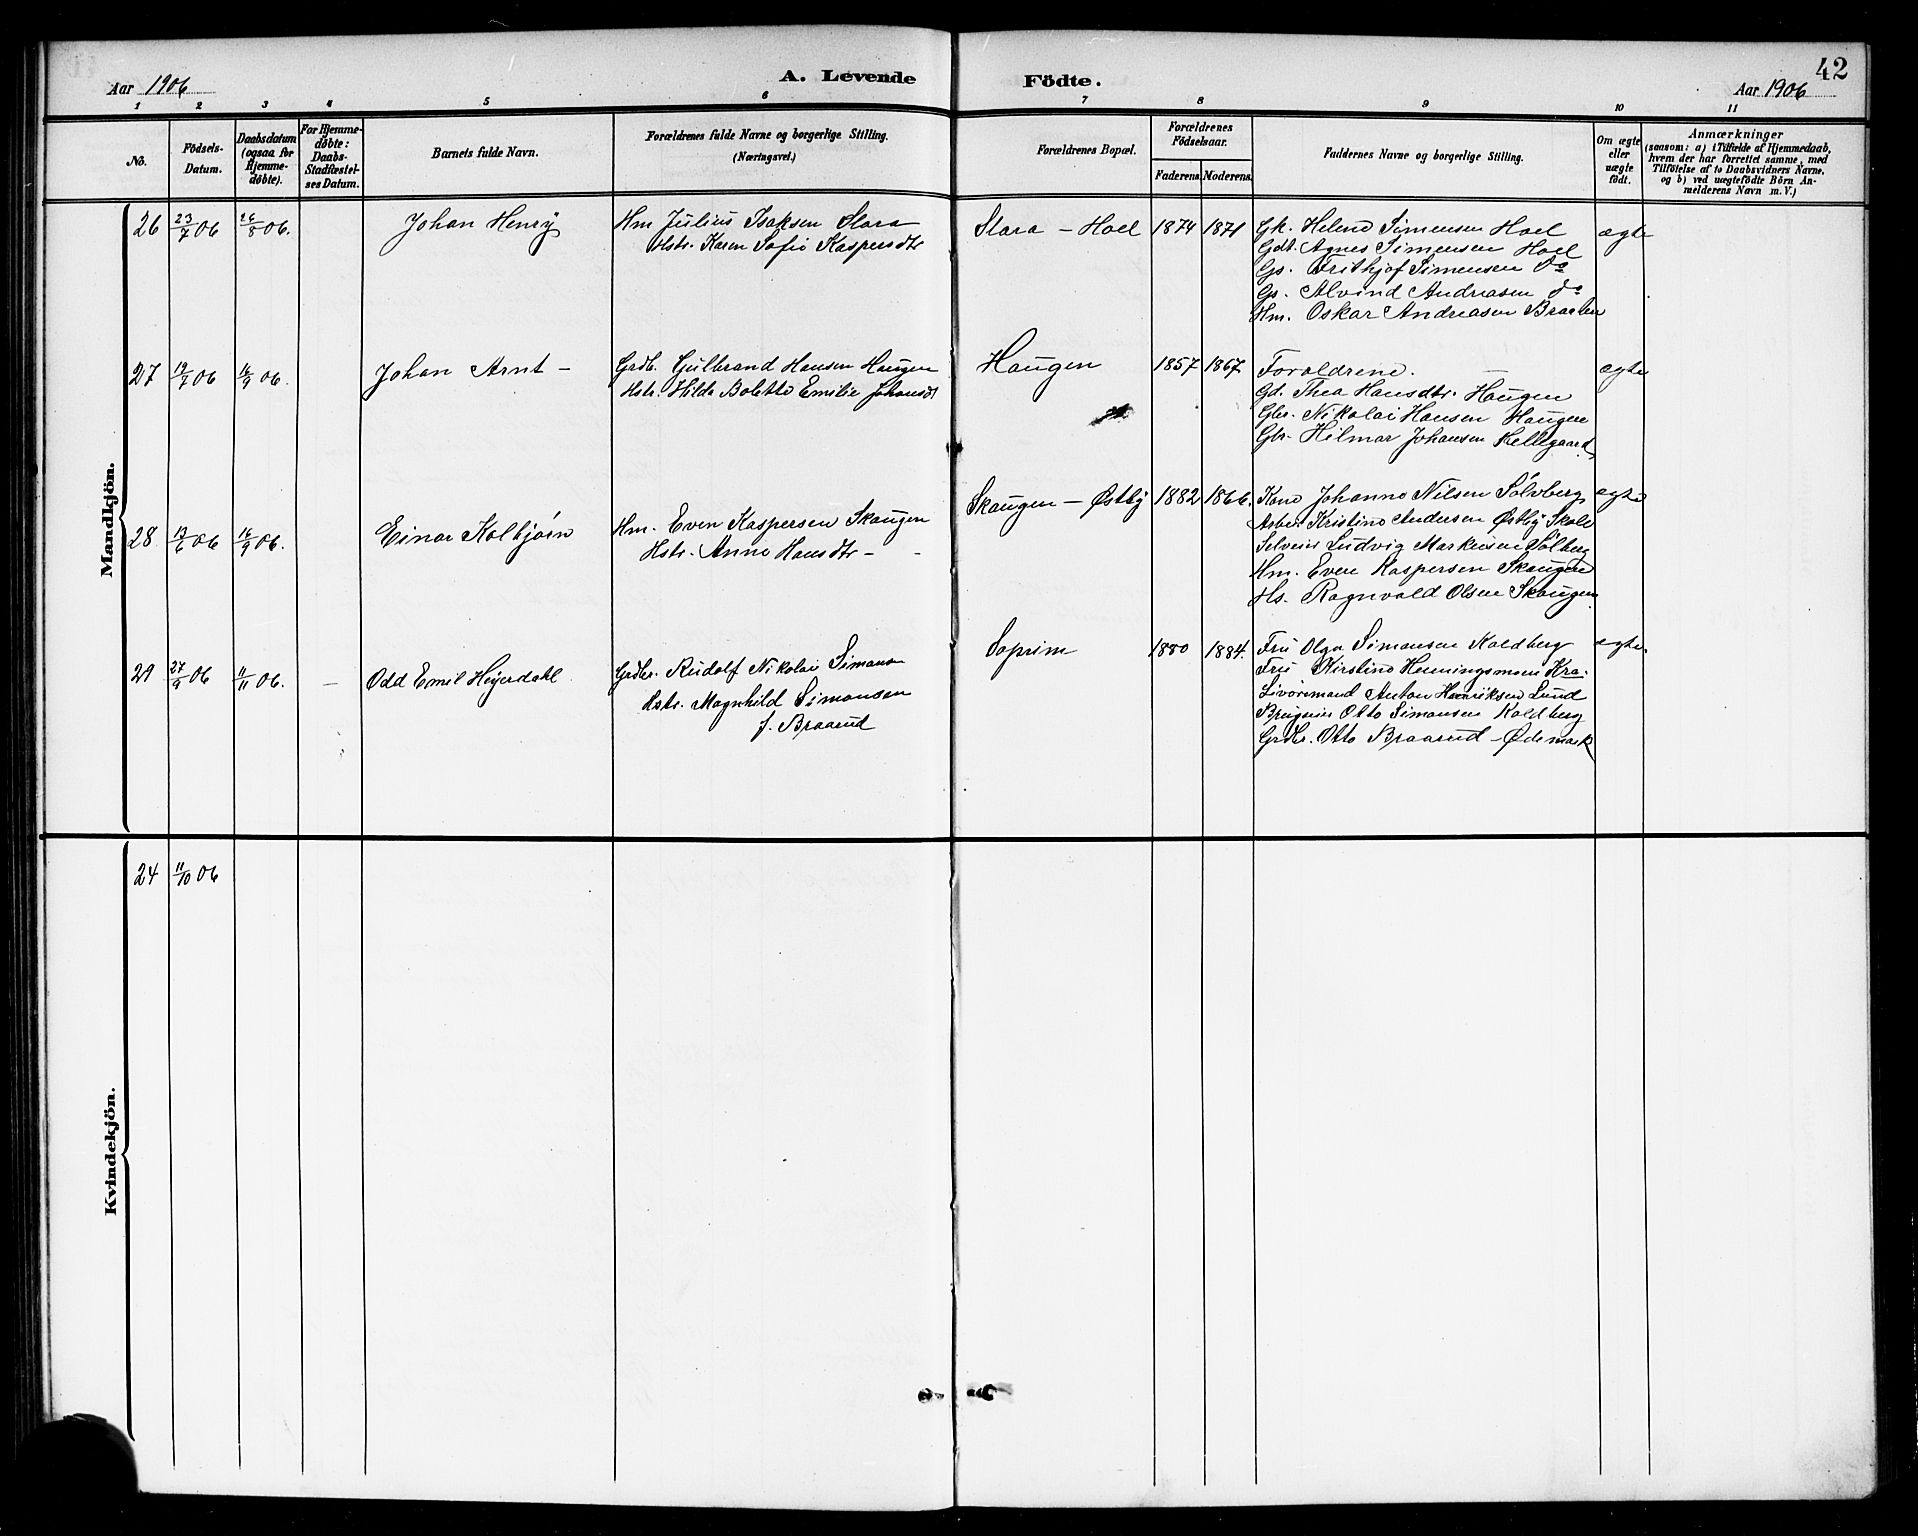 42
Aar 1906
A. Levende Födte.
Aar 1906
1 2 3 4 5 6 7 8 9 10 11
No.
Födsels-
Datum.
Daabsdatum
(ogsaa for
Hjemme-
döbte).
For Hjemme-
döbte:
Daabs-
Stadfæstel-
ses Datum.
Barnets fulde Navn.
Forældrenes fulde Navne og borgerlige Stilling.
(Næringsvei.)
Forældrenes Bopæl.
Forældrenes
Födselsaar.
Faderens. Moderens.
Faddernes Navne og borgerlige Stilling.
Om ægte
eller
uægte
födt.
Anmærkninger
(saasom: a) i Tilfælde af Hjemmedaab,
hvem der har forrettet samme, med
Tilföielse af to Daabsvidners Navne,
og b) ved uægtefödte Börn An-
melderens Navn m. V.)
Mandkjön.
26 23/7 06 26/8 06. Johan Henry
Hm Julius Isaksen Slara
Hstr. Karen Sofie Kaspersdtr
Slara – Hoel 1874 1871
Gk. Helene Simensen Hoel
Gdt. Agnes Simensen Hoel
Gs. Frithjof Simensen do
Gs. Alvind Andreasen do
Hm. Oskar Andreasen Braaten
ægte
27 12/7 06 16/9 06. Johan Arnt –
Grdb. Gulbrand Hansen Haugen
Hstr. Hilda Bolette Emilie Johansdt
Haugen 1857 1867
Foroldrene. –
Gd. Thea Hansdtr. Haugen
Gbr. Nikolai Hansen Haugen
Gbr. Hilmar Johansen Kellegaard
ægte
28 12/6 06 16/9 06. Einar Kolbjørn
Hm. Even Kaspersen Skaugen
Hstr. Anne Hansdtr –
Skaugen – Østby 1882 1866.
Kone Johanne Nilsen Sølvberg
Kristine Andersen Østby Skole
Selveier Ludvig Markusen Sølberg
Hm. Even Kaspersen Skaugen
Hs. Ragnvald Olsen Skaugen
ægte
29 27/9 06 11/11 06. – Odd Emil Heyerdahl
Grdbr. Rudolf Nikolai Simonsen
Hstr. Magnhild Simonsen
f. Braarud
Soprim 1880 1884.
Fru Olga Simonsen Koldberg
Fru Kirstine Henningsmoen Kra.
Livörsmand Anton Henriksen Lund
Brugseier Otto Simonsen Koldberg
Grdbr. Otto Braarud – Ødemark
ægte.
Kvindekjön.
24 11/10 06